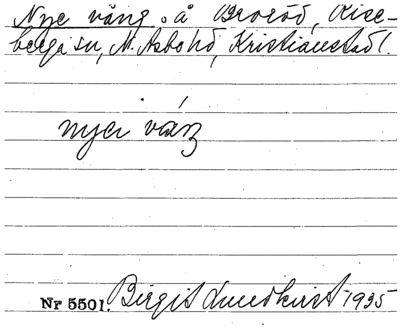 Nye vång, å Broröd, Rise-
berga sn, N. Åsbo hd, Kristianstad l.
nyer váŋ
Nr 5501. Birgit Lundkvist 1935